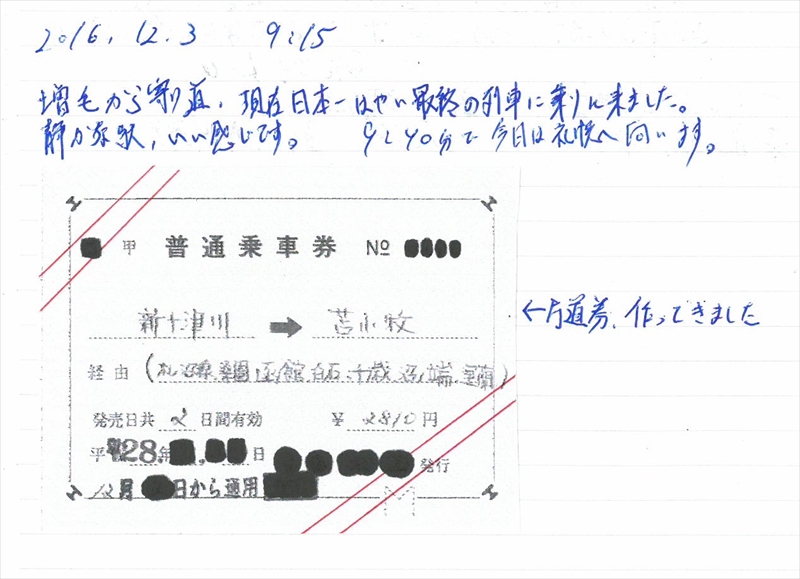 2016, 12.3 9:15
増毛から寄り道、現在日本一はやい最終の列車に乗りに来ました。
静かな駅、いい感じです。 9:40分で今日は札幌へ向います。
甲 普通乗車券 No
新十津川 ➡ 苫小牧
←片道券、作ってきました
経由 (札沼線 函館 千歳 室蘭)
発売日共 2 日間有効 ¥ 2810 円
平 28.年 日 発行
12月 日から適用